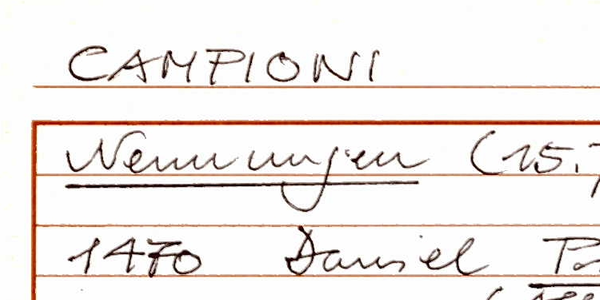 CAMPIONI
Nennungen (15.
1470 Daniel